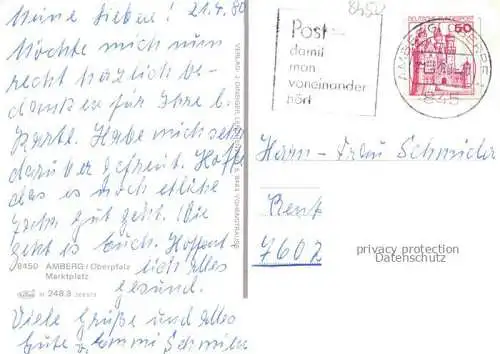 Meine Lieben! 21.4.80
Möchte mich nun
recht herzlich be-
danken für Ihre l.
Karte. Habe mich sehr
darüber gefreut. Hoffe
das es noch etliche
Jahre gut geht. Wie
geht es Euch. Hoffent
lich alles
gesund.
Viele Grüße und alles
Gute Emmi Schmi
8450 AMBERG/Oberpfalz
Marktplatz
248.3
Post -
damit
man
voneinander
hört
DEUTSCHE BUNDESPOST
50
AMBERG
845
8450
Herrn - Frau Schmider
7602
privacy protection
Datenschutz